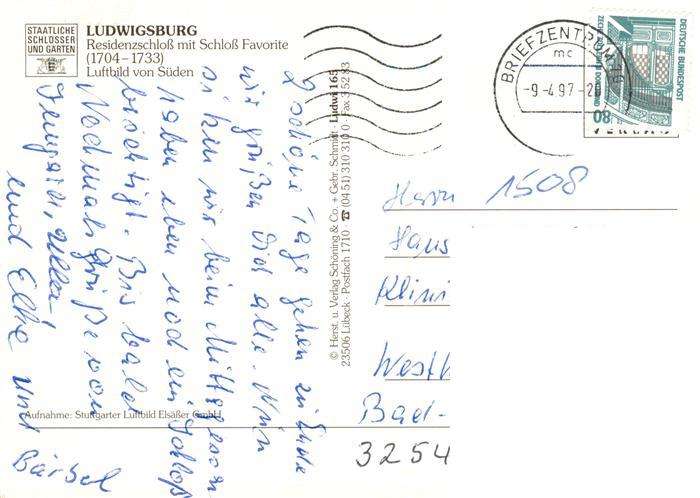 STAATLICHE
SCHLÖSSER
UND GÄRTEN
LUDWIGSBURG
Residenzschloß mit Schloß Favorite
(1704–1733)
Luftbild von Süden
2 schöne Tage gehen zu Ende
wir grüßen Dich alle. Nun
sitzen wir beim Mittagessen
haben eben noch ein Schloß
besichtigt. Bis bald
Nochmals Grüße von
Irmgard,
und Elke und
Bärbel
Aufnahme: Stuttgarter Luftbild Elsäßer GmbH
© Herst. u. Verlag Schöning & Co. + Gebr. Schmidt · Ludwi 165
23506 Lübeck · Postfach 1710 · ☎ (04 51) 310 310 · Fax 3 52 83
BRIEFZENTRUM 76
mc
-9-4.97-20
DEUTSCHE BUNDESPOST
80
Herrn 1508
Hans
Klini
Westf
Bad-
3254